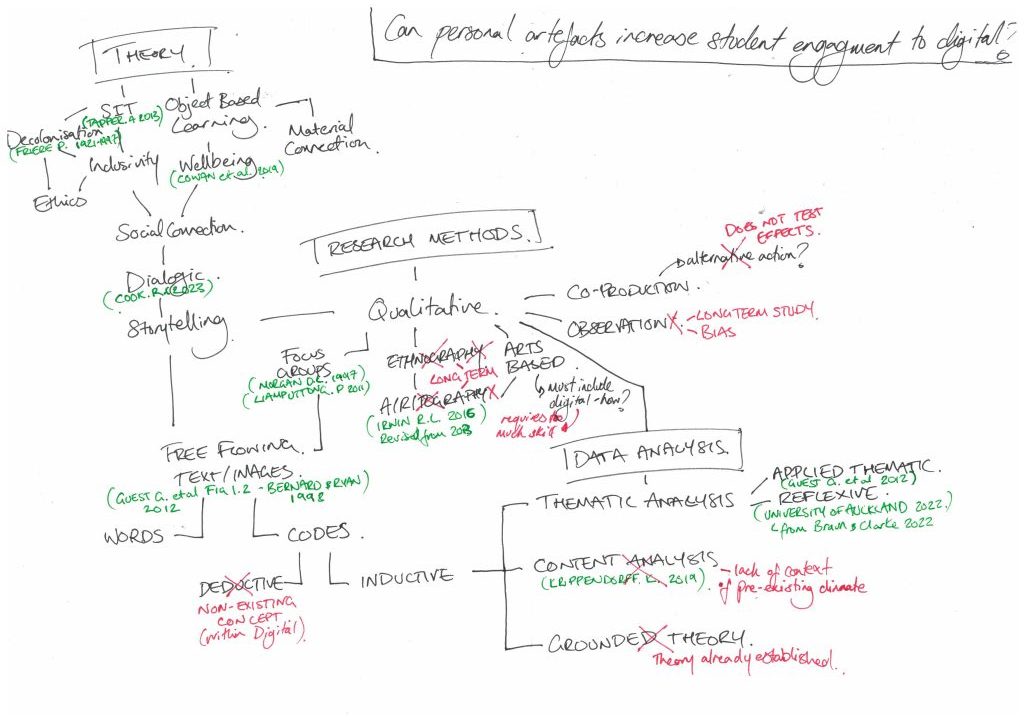 Can personal artefacts increase student engagment to digital?
THEORY
SIT
(TAPPER. A 2013)
Object Based
Learning.
Decolonisation
(FRIERE P. 1921-1997)
Inclusivity
Ethics
Material
Connection.
Wellbeing
(COWAN et al. 2019)
Social Connection.
Dialogic
(COOK. R. 2023)
Storytelling
RESEARCH METHODS.
Qualitative.
DOES NOT TEST
EFFECTS.
alternative action?
CO-PRODUCTION.
OBSERVATION X
- LONG TERM STUDY.
- BIAS
FOCUS
GROUPS
(MORGAN D.L. 1997)
(LIAMPUTTONG. P 2011)
ETHNOGRAPHY
LONG TERM
A/R/TOGRAPHY X
(IRWIN R.L. 2016
Revised from 2013)
ARTS
BASED
must include
digital - how?
requires too
much skill
FREE FLOWING
TEXT/IMAGES.
(GUEST G. et al Fig 1.2 - BERNARD & RYAN)
2012
1998
WORDS
CODES.
DEDUCTIVE
NON-EXISTING
CONCEPT
(within Digital)
INDUCTIVE
DATA ANALYSIS.
THEMATIC ANALYSIS
APPLIED THEMATIC.
(GUEST G. et al 2012)
REFLEXIVE.
(UNIVERSITY OF AUCKLAND 2022.)
from Braun & Clarke 2022
CONTENT ANALYSIS
(KRIPPENDORFF. K. 2019)
- lack of context
if pre-existing climate
GROUNDED THEORY.
Theory already established.